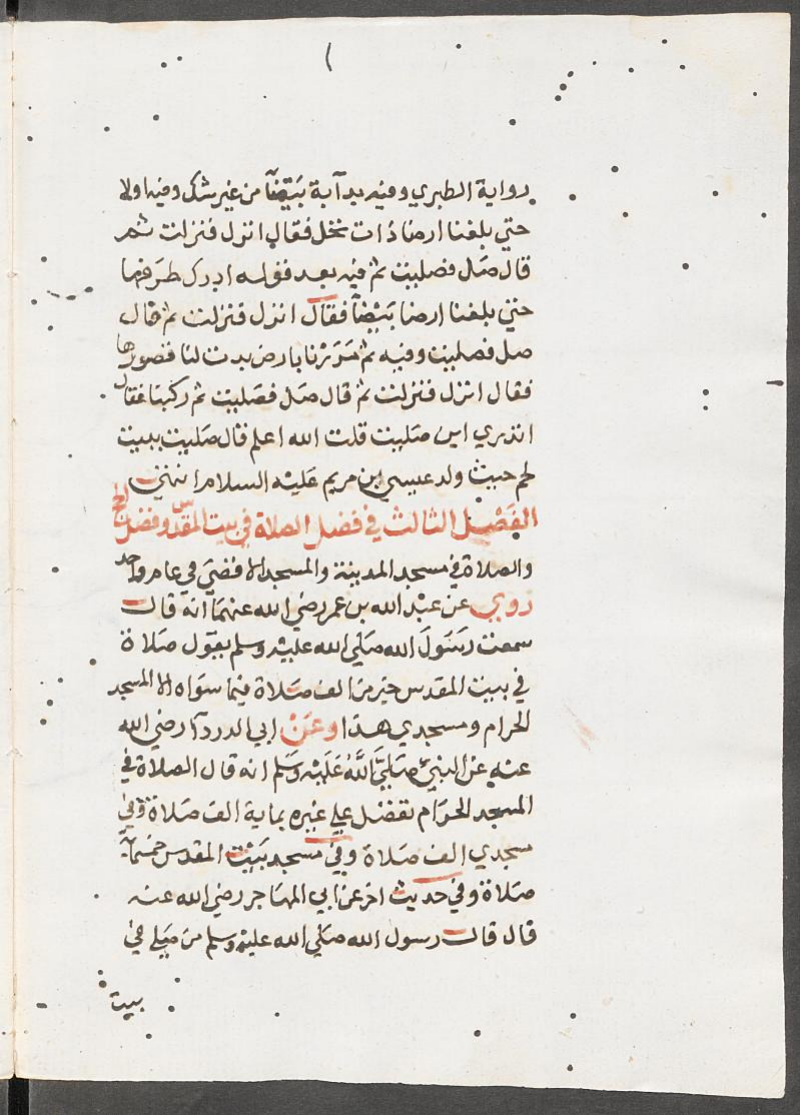 رواية الطبري وفيه بدآبة بَيْضآ من غير شك وفيه اولا
حتي بلغنا ارضا ذات نخل فقال انزل فنزلت ثم
قال صل فصليت ثم فيه بعد قوله ادرك طرفها
حتي بلغنا ارضا بَيْضآ فقال انزل فنزلت ثم قال
صل فصليت وفيه ثم مَرَرْنا بارض بدت لنا قصورها
فقال انزل فنزلت ثم قال صل فصليت ثم ركبنا فقال
اتدري اين صليت قلت الله اعلم قال صليت ببيت
لحم حيث ولد عيسي ابن مريم عليه السلام انتهي
الفَصْل الثالث في فضل الصلاة في بيت المقدس وفضل الحج
والصلاة في مسجد المدينة والمسجد الاقصي في عام واحد
روي عن عبْد الله بن عمر رضي الله عنهما انه قال
سمعت رَسُولَ الله صَلي الله عليْه وسلم يقول صَلاة
في بيت المقدس خير من الف صَلاة فيما سواه الا المسجد
الحرام ومسجدي هذا وعَنْ ابي الدردآ رضي الله
عنه عن النبي صَلي اللَّهُ عَلَيْه وَسَلم انه قال الصلاة في
المسجد الحَرَام تفضل علي غيره بماية الف صَلاة وفي
مسجدي الف صَلاة وفي مسجد بَيْت المقدس خمسماية
صَلاة وفي حديث اخر عن ابي المهاجر رضي الله عنه
قال قال رسول الله صَلي الله عليْه وسلم من صَلي في
بيت